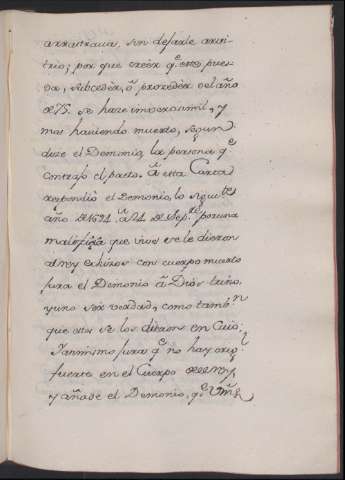 arrastraua, sin dejarle arui-
trio; por que creèr q.e esto pue-
da, subceder, ô proceder del año
de 75. se haze inverisimil, y
mas haviendo muerto, segun
dize el Demonio, la persona q.e
contrajo el pacto. â esta Carta
respondio el Demonio, lo siguite.
año de 1694. â 24 de Sep.re por una
que unos se le dieron
al rey echizos con cuerpo muerto
jura el Demonio â Dios trino,
y uno ser verdad, como tamb.n
que estos se los dieron en
Jasimismo jura q.e no hay orig.l
fuerte en el Cuerpo del rey,
y añade el Demonio, q.e